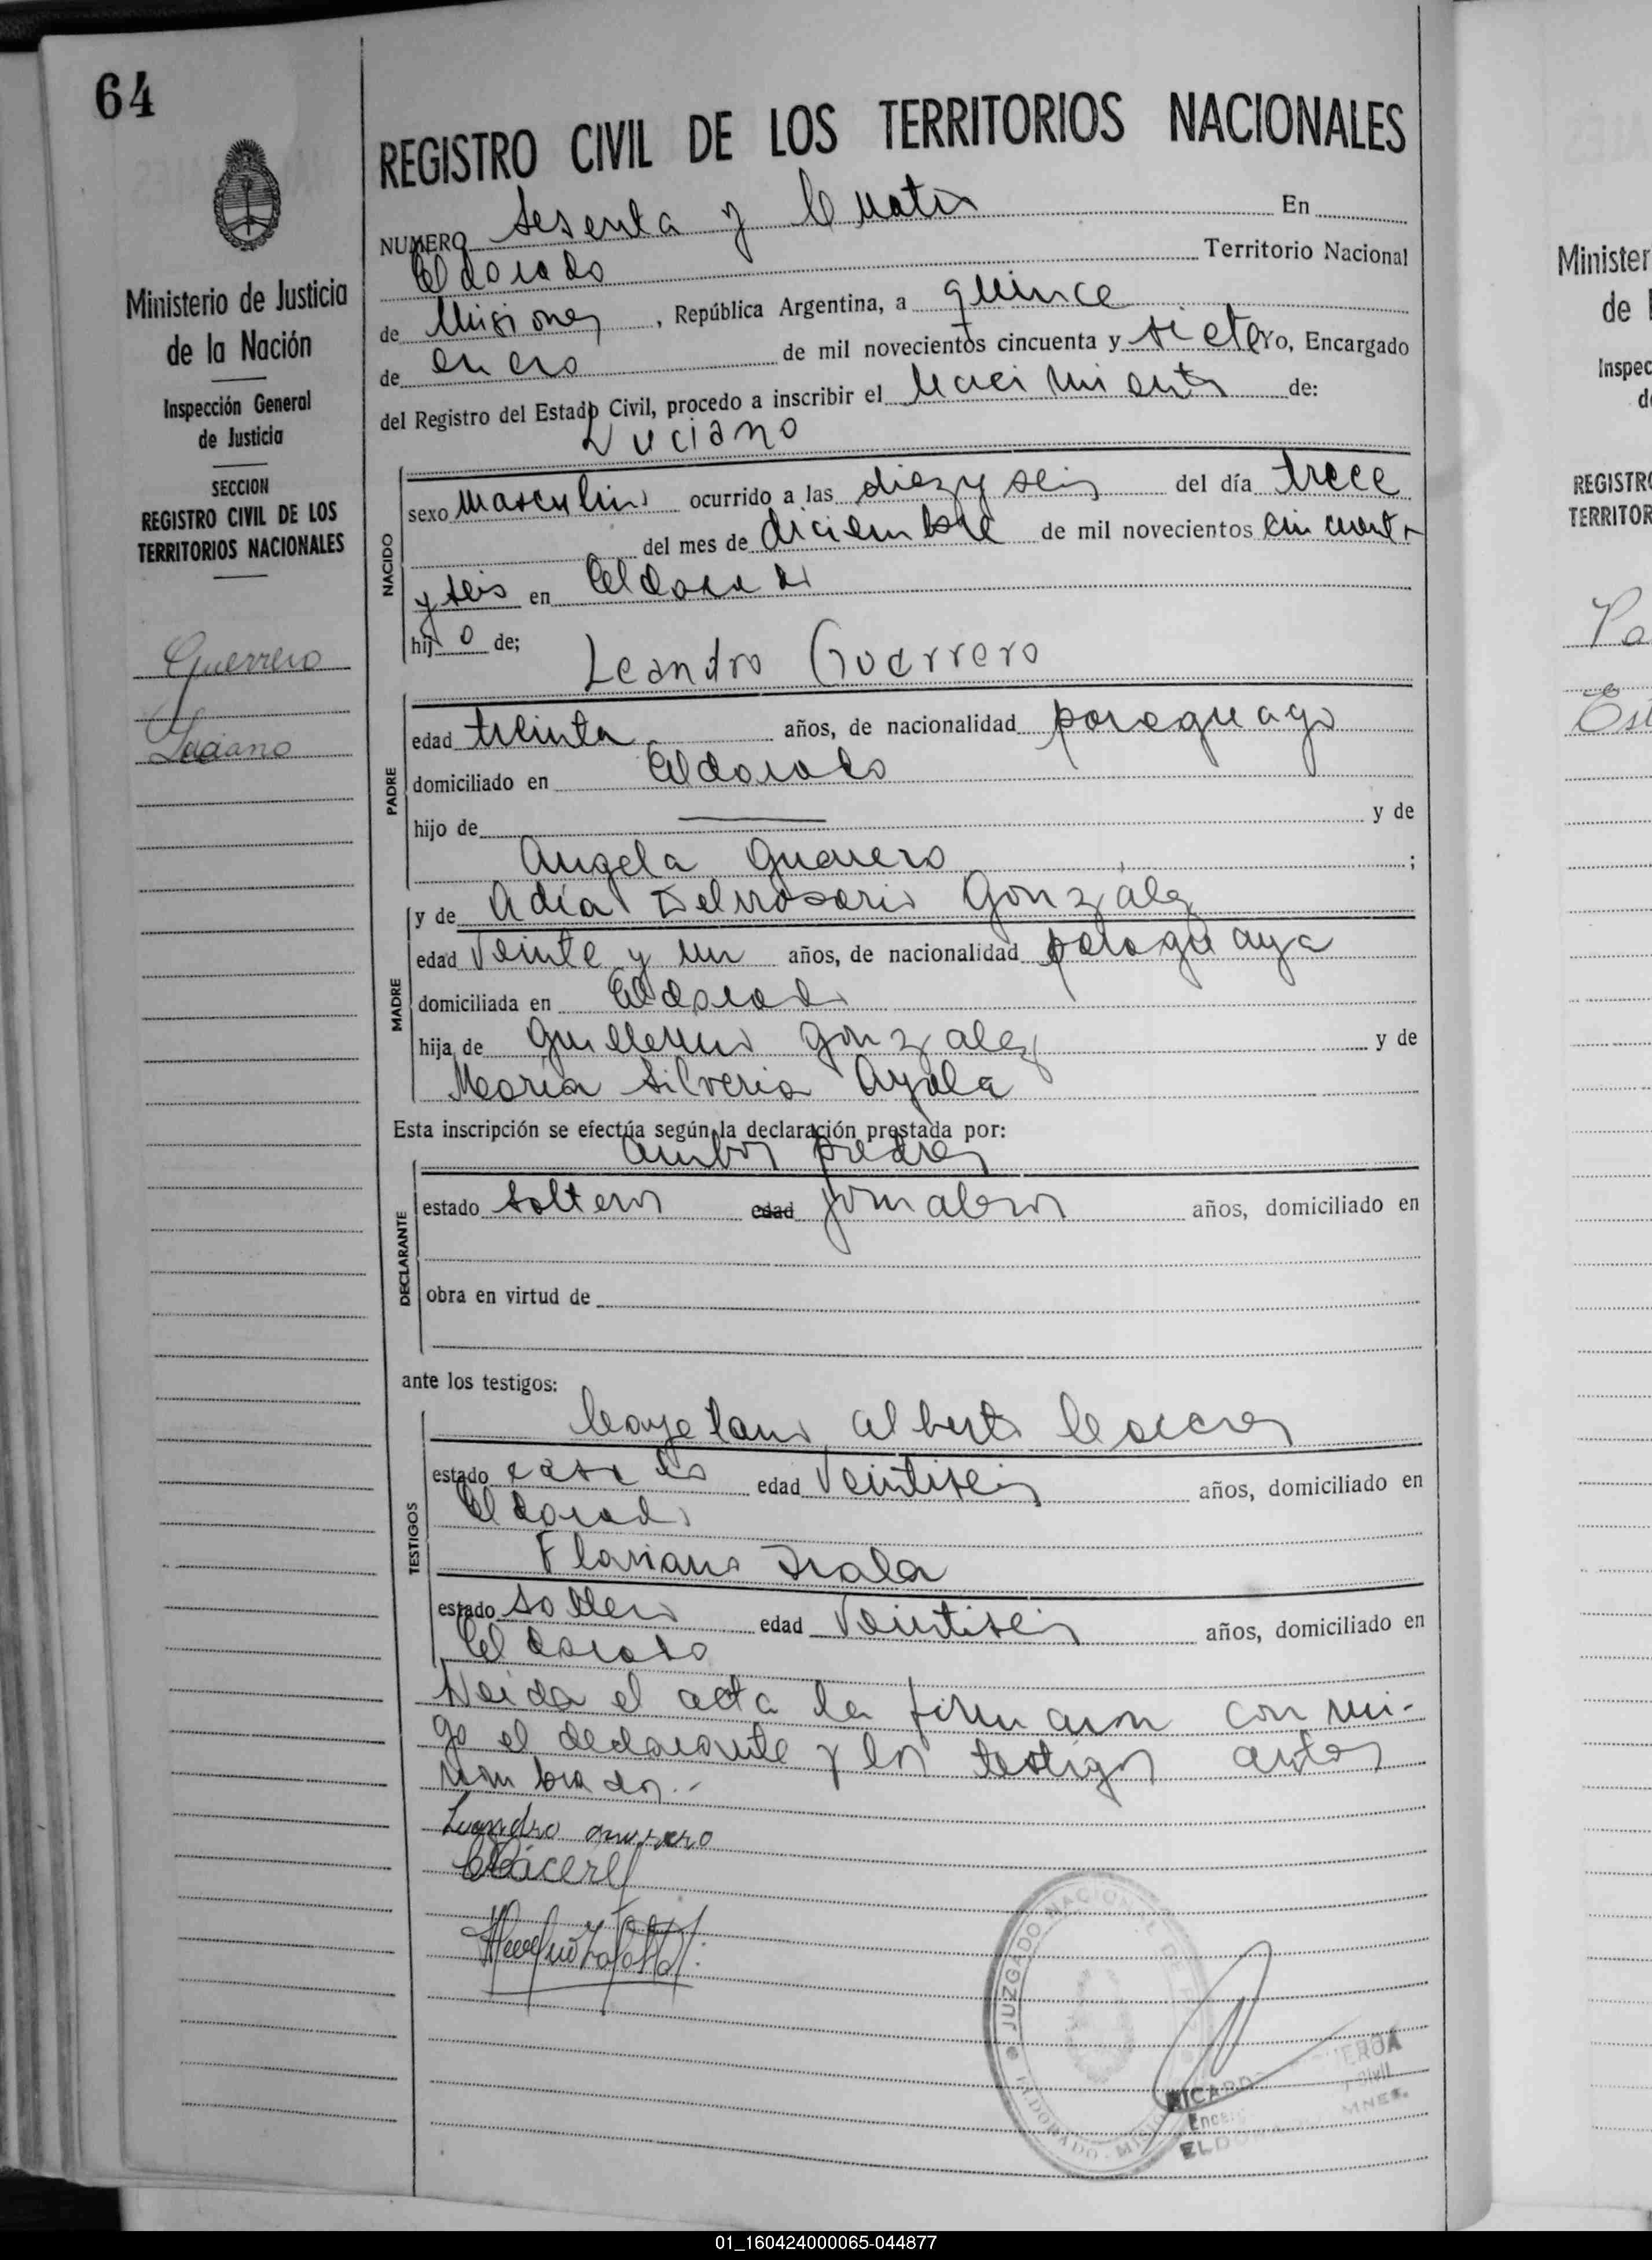 64
REGISTRO CIVIL DE LOS TERRITORIOS NACIONALES
NUMERO Sesenta y Cuatro En
Eldorado Territorio Nacional
de Misiones, República Argentina, a quince
de enero de mil novecientos cincuenta y siete Yo, Encargado
del Registro del Estado Civil, procedo a inscribir el Nacimiento de:
Luciano
NACIDO
sexo masculino ocurrido a las diez y seis del día trece
del mes de diciembre de mil novecientos cincuenta
y seis en Eldorado
hijo de;
Leandro Guerrero
PADRE
edad treinta años, de nacionalidad paraguayo
domiciliado en Eldorado
hijo de — y de
Angela Guerrero ;
y de Adia Delrosario González
MADRE
edad Veinte y un años, de nacionalidad paraguaya
domiciliada en Eldorado
hija de Guillermo Gonzalez y de
Maria Silveria Ayala
Esta inscripción se efectúa según la declaración prestada por:
ambos padres
DECLARANTE
estado solteros edad jornaleros años, domiciliado en
obra en virtud de
ante los testigos:
Cayetano Alberto Caceres
TESTIGOS
estado casado edad Veintiseis años, domiciliado en
Eldorado
Flaviano Irala
estado soltero edad Veintiseis años, domiciliado en
Eldorado
Leida el acta la firmaron conmi-
go el declarante y los testigos antes
nombrados.-
Leandro Guerrero
CACáceres
Ministerio de Justicia
de la Nación
Inspección General
de Justicia
SECCION
REGISTRO CIVIL DE LOS
TERRITORIOS NACIONALES
Guerrero
Luciano
JUZGADO NACIONAL DE PAZ
ELDORADO - MISIONES
RICARDO
ELDORADO MNES.
Minister
de
Inspec
REGISTR
TERRITOR
01_160424000065-044877